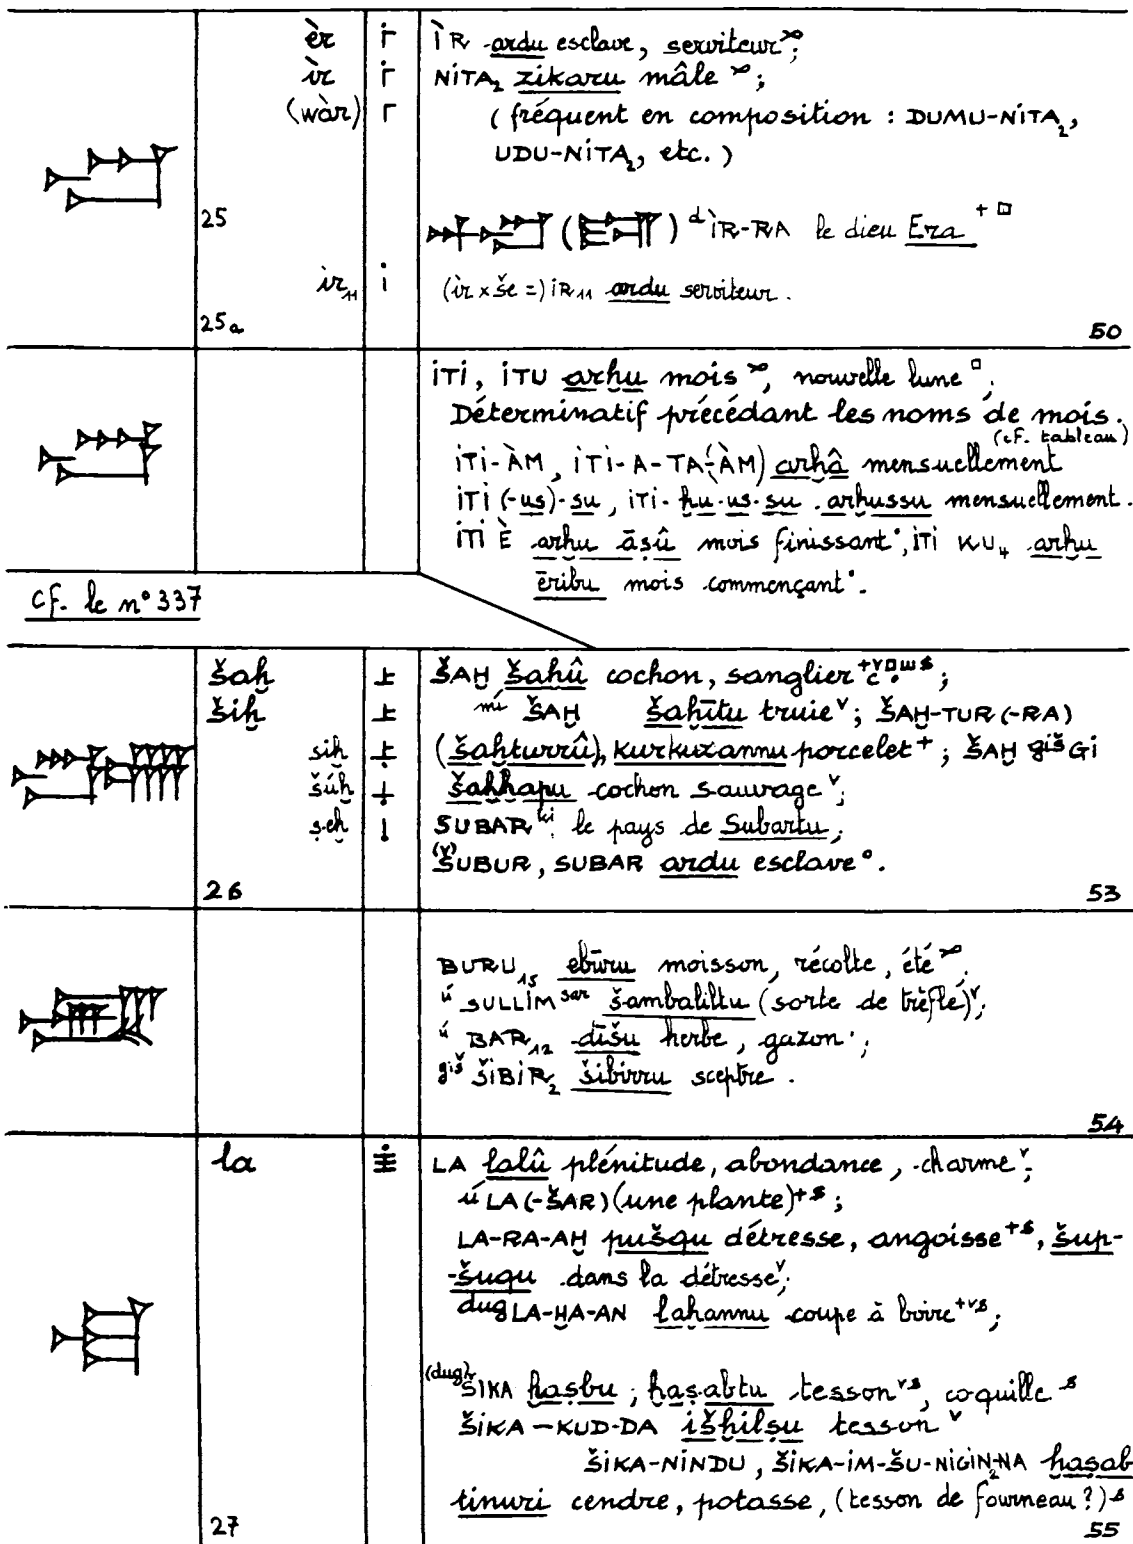 èr ÌR ardu esclave, serviteur;
ìr NITA₂ zikaru mâle;
(wàr) (fréquent en composition : DUMU-NITA₂,
UDU-NITA₂, etc.)
25
ᵈÌR-RA le dieu Era
ìr₁₁ (ìr × še =) ÌR₁₁ ardu serviteur.
25a 50
ITI, ITU arḫu mois, nouvelle lune;
Déterminatif précédant les noms de mois.
(cf. tableau)
ITI-ÀM, ITI-A-TA(-ÀM) arḫâ mensuellement
ITI(-us)-su, ITI-ḫu-us-su arḫussu mensuellement.
ITI È arḫu āṣû mois finissant°, ITI KU₄ arḫu
ēribu mois commençant°.
cf. le n° 337
šaḫ ŠAḪ šaḫû cochon, sanglier;
šiḫ ᵐⁱ́ ŠAḪ šaḫītu truie ᵛ; ŠAḪ-TUR(-RA)
siḫ (šaḫturrû), kurkuzannu porcelet⁺; ŠAḪ ᵍⁱˢ̌ GI
šúḫ šaḫḫapu cochon sauvage ᵛ;
ṣeḫ SUBAR ᵏⁱ le pays de Subartu;
ŠUBUR, SUBAR ardu esclave°.
26 53
BURU₁₅ ebūru moisson, récolte, été;
ú SULLIM ˢᵃʳ šambaliltu (sorte de trèfle) ᵛ;
ú BAR₁₂ dīšu herbe, gazon;
ᵍⁱˢ̌ ŠIBIR₂ šibirru sceptre.
54
la LA lalû plénitude, abondance, charme ᵛ;
ú LA(-ŠAR) (une plante)⁺ˢ;
LA-RA-AḪ pušqu détresse, angoisse⁺ˢ, šup-
-šuqu dans la détresse ᵛ;
dug LA-ḪA-AN laḫannu coupe à boire⁺ᵛˢ;
(dug) ŠIKA ḫaṣbu; ḫaṣabtu tesson ᵛˢ, coquille ˢ
ŠIKA-KUD-DA išḫilṣu tesson ᵛ
ŠIKA-NINDU, ŠIKA-IM-ŠU-NIGIN₂-NA ḫaṣab
tinuri cendre, potasse, (tesson de fourneau?) ˢ
27 55